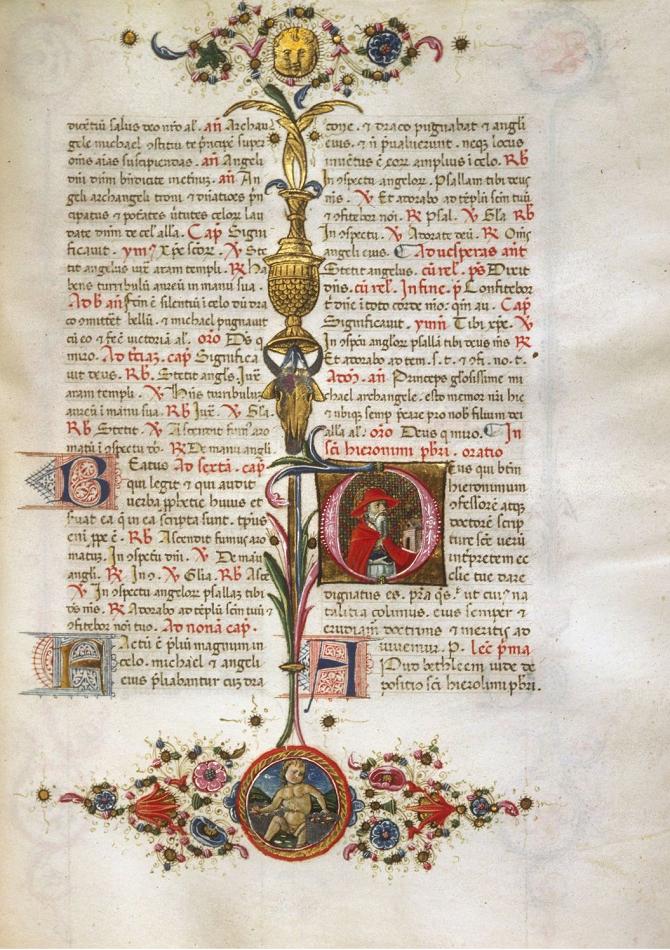 dicētiū salus deo nr̄o al. añ Archan
gele michael ꝯstitui te p̄ncipē super
om̄s aīas suscipiendas. añ Angeli
dn̄i dnm̄ bn̄dicite metinuz. añ An
geli archangeli troni et dn̄atiōes p̄n
cipatus et potātes v̄tutes celorz lau
date dnm̄ de cel alla. Cap Signi
ficauit. ymꝰ Xp̄e
tit angelus iux̄ aram templi. R
bens turribulū aureū in manu sua.
Ad b añ silentiū i celo dū dra
co ꝯmittēt bellū. et michael pugnauit
cū eo et fec̄ victoriā al. or̄o Ds q
miro. Ad t̄ciaz. cap Significa
uit deus. Rb. Stetit angl̄s. Iux̄
aram templi. V Hn̄s turribuluz
aureū i manu sua. Rb Iux̄. V Gla.
Rb Stetit. V Ascendit fum aro
matū i ꝯspectu dō. R De manu angli
Beatus Ad sextā. cap̄
qui legit et qui audit
uerba ꝓphetie huius et
seruat ea q̄ in ea scripta sunt. tp̄us
eni ꝓpe ē. Rb Ascendit fumus aro
matuz. In ꝯspectu dn̄i. V De manu
angli. R In ꝯ. V Glia. Rb Asce
V In ꝯspectu angelor psallaz tibi
ds ms. R Adorabo ad tēplū scm̄ tuū et
ꝯfitebor noi tuo. Ad nonā cap.
Factū ē p̄liū magnum in
celo. michael et angeli
eius p̄liabantur cuz dra
cone. et draco pugnabat et angli
eius. et n̄ p̄ualuerunt. neqz locus
inuētus ē eor amplius i celo. Rb
In ꝯspectu angelor. Psallam tibi deus
ms. V Et adorabo ad tēplū scm̄ tuū
et ꝯfitebor noi. R Psal. V Gla Rb
In ꝯspectu. V Adorate deū. R Om̄s
angeli eius. Ad uesperas ant
Stetit angelus. cū rel. ps Dixit
dn̄s. cū rel. In fine. p Confitebor
t̄ dn̄e i toto corde mō: qm̄ au. Cap
Significauit. ymn̄ Tibi xp̄e. V
In ꝯspcū anglor psallā tibi deus ms R
Et adorabo ad tem. s. t. et ꝯfi. no. t.
Ad m. añ Princeps gl̄osissime mi
chael archangele. esto memor nr̄i hic
et ubiqz semp p̄care pro nob filium dei
alla al. oro Deus q miro. In
scī hieronimi pb̄ri. oratio
Deus qui btm̄
hieronimum
ꝯfessorē atqz
doctorē scrip
ture scē uerū
int̄pretem ec
clie tue dare
dignatus es. pr̄a qs. ut cuiꝰ na
talitia colimus. eius semper et
erudiam̄ doctrinis et meritis ad
iuuemur. P. lec p̄ma
Apud bethleem iude de
positio scī hieronimi pb̄ri.